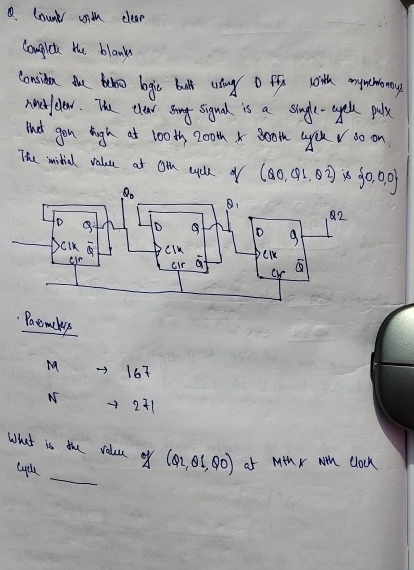 Q. Counter with clear
Complete the blanks
Consider the below logic built using D ffs with asynchronous
reset/clear. The clear signal is a single-cycle pulse
that goes high at 100th, 200th & 300th cycle & so on.
The initial value at 0th cycle of (Q0, Q1, Q2) is {0,0,0}
Q0 Q1 Q2
D Q D Q D Q
Clk Q̅ Clk Q̅ Clk Q̅
Clr Clr Clr
. Parameters
M → 167
N → 271
What is the value of (Q2, Q1, Q0) at Mth & Nth clock
cycle ____